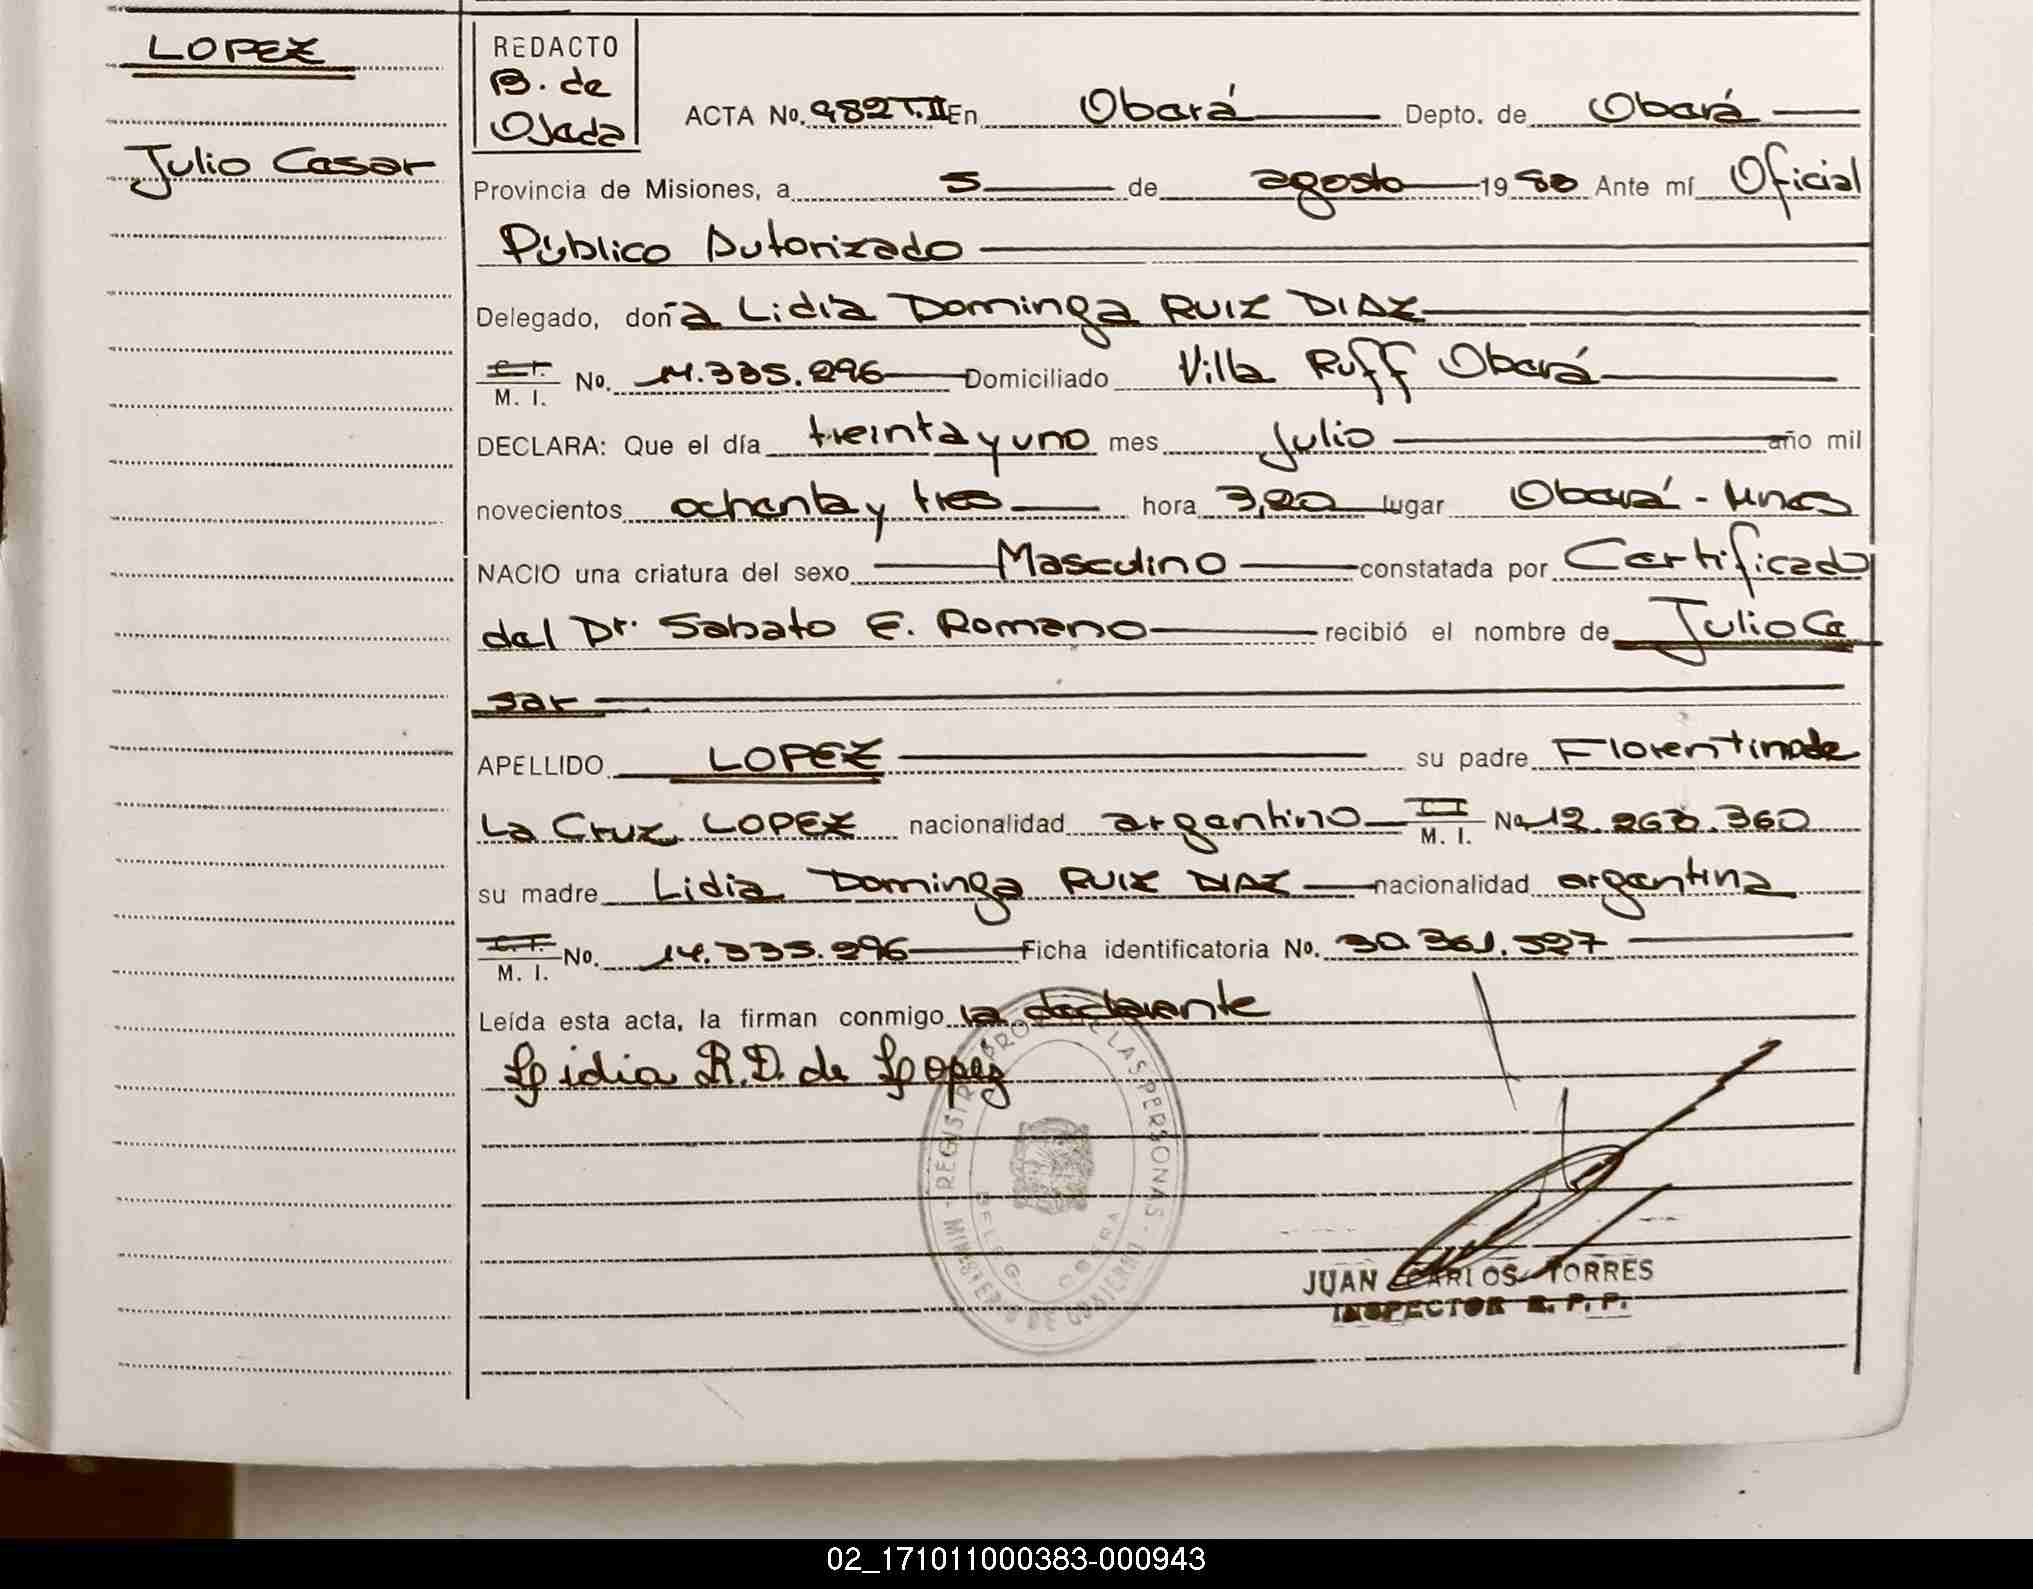 LOPEZ
Julio Cesar
REDACTO
B. de
Ojeda
ACTA No. 982 T. II En Oberá Depto. de Oberá
Provincia de Misiones, a 5 de agosto 19 Ante mí Oficial
Público Autorizado
Delegado, doña Lidia Dominga RUIZ DIAZ
C. I.
M. I. No. 14.335.296 Domiciliado Villa Ruff Oberá
DECLARA: Que el día treinta y uno mes Julio año mil
novecientos ochenta y tres hora 3,20 lugar Oberá - Mnes
NACIO una criatura del sexo Masculino constatada por Certificado
del Dr. Sabato E. Romano recibió el nombre de Julio Ce
sar
APELLIDO LOPEZ su padre Florentino de
La Cruz LOPEZ nacionalidad argentino M. I. No. 12. .360
su madre Lidia Dominga RUIZ DIAZ nacionalidad argentina
C. I.
M. I. No. 14.335.296 Ficha identificatoria No. 30.361.527
Leída esta acta, la firman conmigo la declarante
Lidia R.D. de Lopez
REGISTRO PROV. DE LAS PERSONAS
MINISTERIO DE GOBIERNO
DELEG. OBERA
JUAN CARLOS TORRES
INSPECTOR R. P. P.
02_171011000383-000943